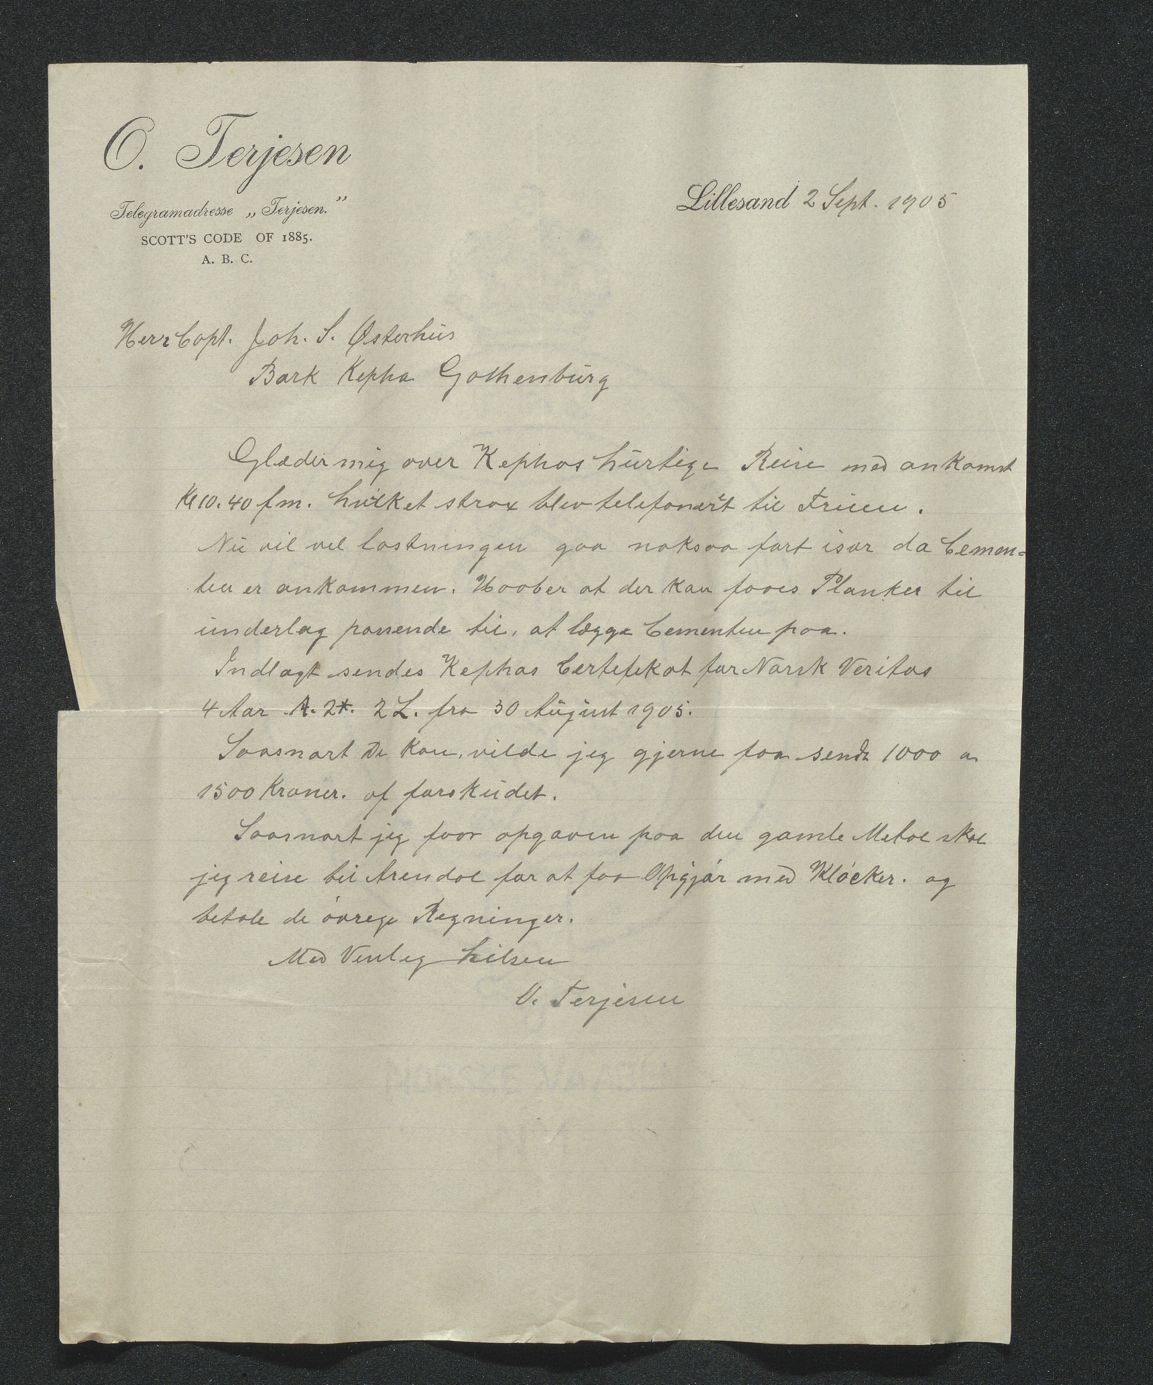 O. Terjesen
Telegramadresse „Terjesen."
SCOTT'S CODE OF 1885.
A. B. C.
Lillesand 2 Sept. 1905
Herr Capt. Joh. S. Østerhus
Bark Kepha Gothenburg
Glæder mig over Kephas hurtige Reise med ankomst
Kl 10.40 fm. hvilket strax blev telefonert til Fruen.
Nu vil vel lastningen gaa noksaa fort især da Cemen-
ten er ankommen. Haaber at der kan faaes Planker til
underlag passende til, at lægge Cementen paa.
Indlagt sendes Kephas Certefekat for Norsk Veritas
4 Aar A. 2*. 2 L. fra 30 August 1905.
Saasnart De kan, vilde jeg gjerne faa sendt 1000 a
1500 Kroner. af forskudet.
Saasnart jeg faar opgaven paa den gamle Metal skal
jeg reise til Arendal for at faa Opgjør med Kløcker. og
betale de øvrege Regninger.
Med Venlig hilsen
O. Terjesen